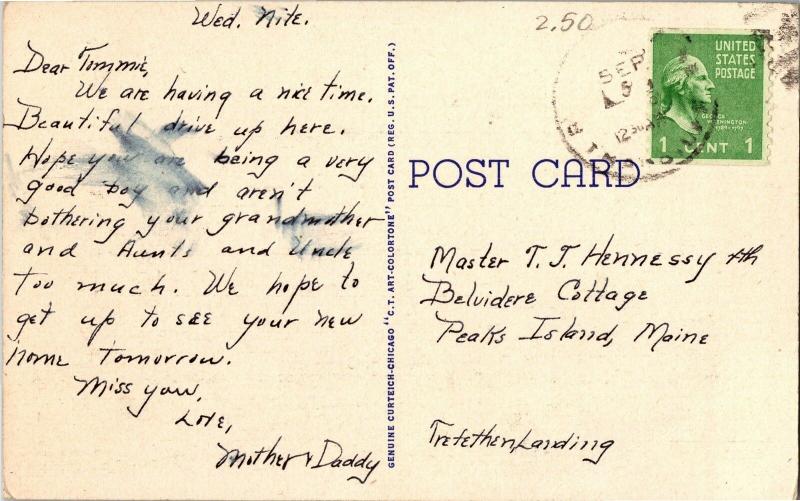 Wed. Nite.
Dear Tommie,
We are having a nice time.
Beautiful drive up here.
Hope you are being a very
good boy and aren't
bothering your grandmother
and Aunts and Uncle
too much. We hope to
get up to see your new
home tomorrow.
Miss you,
Love,
Mother & Daddy
GENUINE CURTEICH-CHICAGO "C.T. ART-COLORTONE" POST CARD (REG. U.S. PAT. OFF.)
2.50
SEP
UNITED
STATES
POSTAGE
GEORGE
WASHINGTON
1789-1797
1 CENT 1
POST CARD
Master T. J. Hennessy 4th
Belvidere Cottage
Peaks Island, Maine
Trefethen Landing